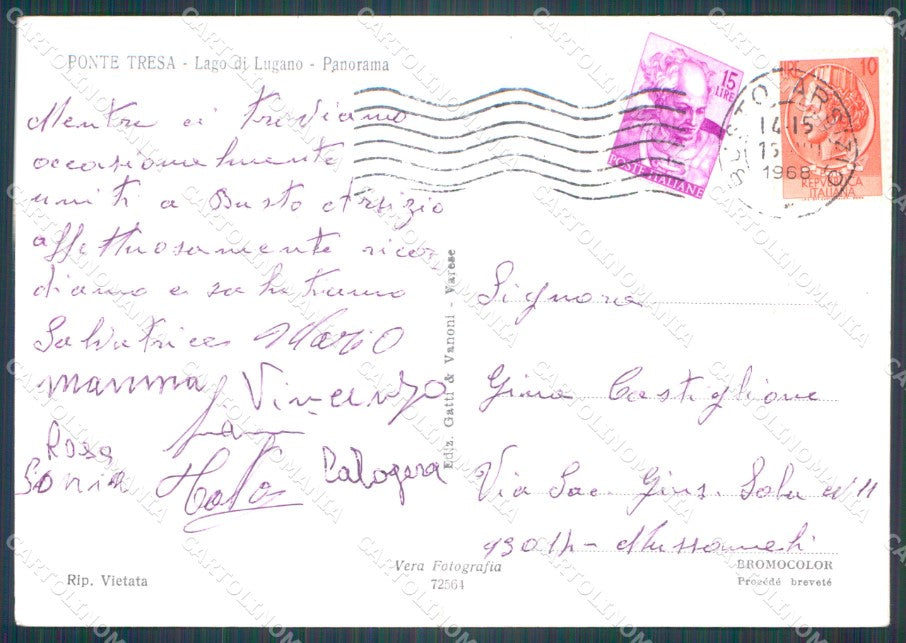 PONTE TRESA - Lago di Lugano - Panorama
15
LIRE
POSTE ITALIANE
LIRE 10
REPVBBLICA
ITALIANA
BUSTO ARSIZIO
14-15
15
1968
Mentre ci troviamo
occasionalmente
uniti a Busto Arsizio
affettuosamente ricor
diamo e salutiamo
Salvatrice Mario
mamma Vincenzo
Rosa
Sonia
Calogera
Ediz. Gatti & Vanoni - Varese
Signora
Gina Castiglione
Via Sac. Gius. Sola n° 11
93014 - Mussomeli
Rip. Vietata
Vera Fotografia
72564
BROMOCOLOR
Procédé breveté
CARTOLINOMANIA